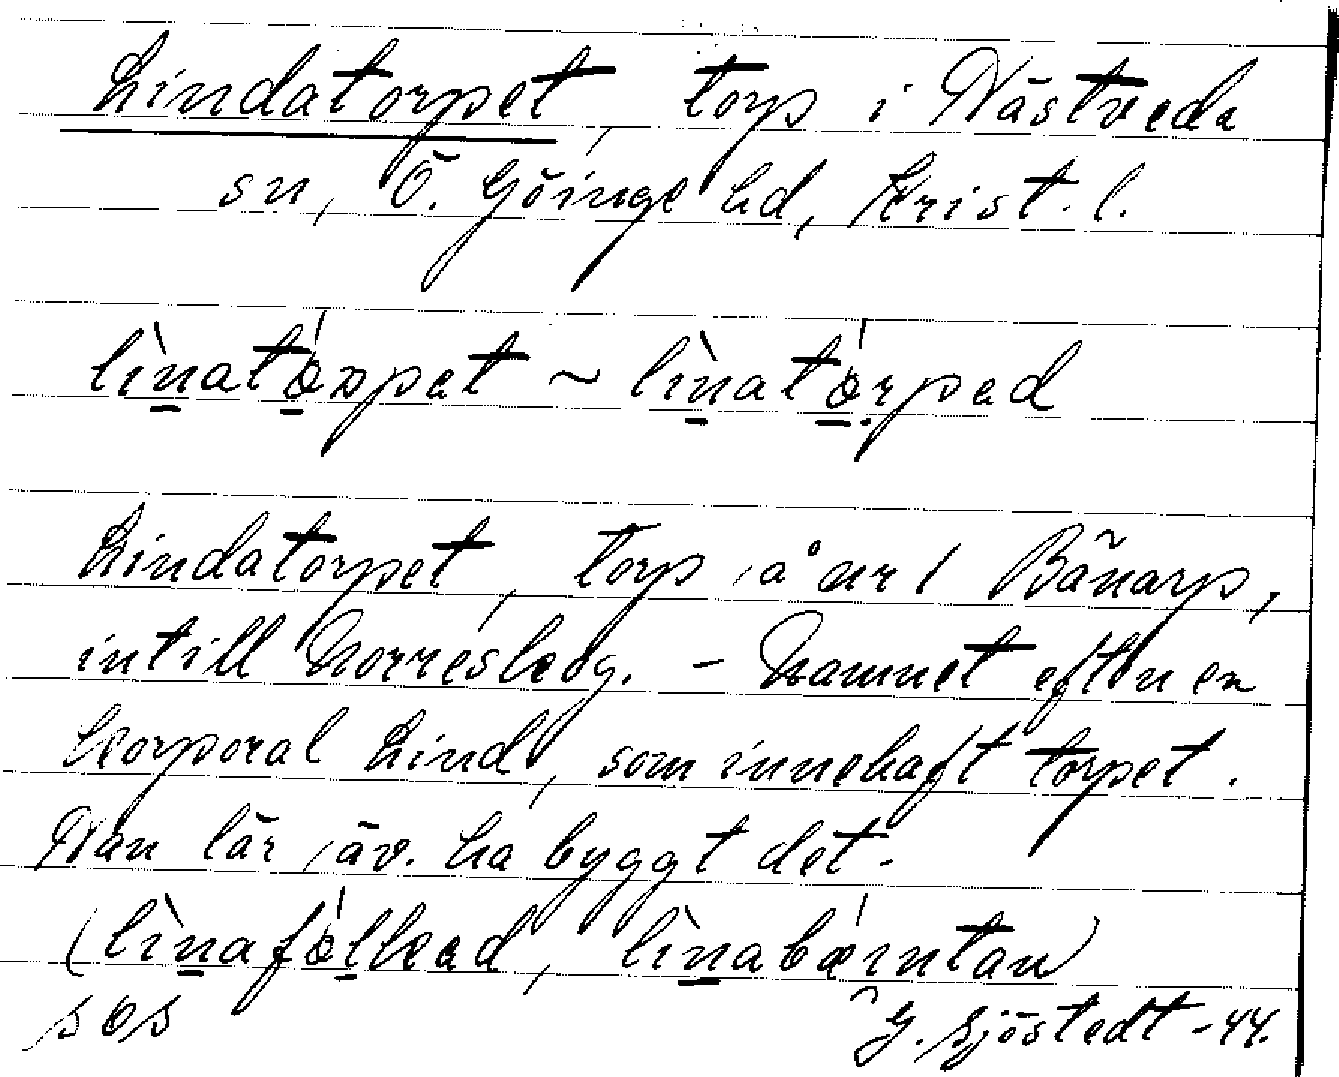 Lindatorpet, torp i Nästveda
sn, Ö. Göinge hd, Krist. l.
lìnatórpet ~ lìnatórped
Lindatorpet, torp å nr 1 Bänarp,
intill Norreskog. – Namnet efter en
korporal Lind, som innehaft torpet.
Han lär äv. ha byggt det.
(lìnafólked, lìnabǽrntan)
SOS G. Sjöstedt -44.